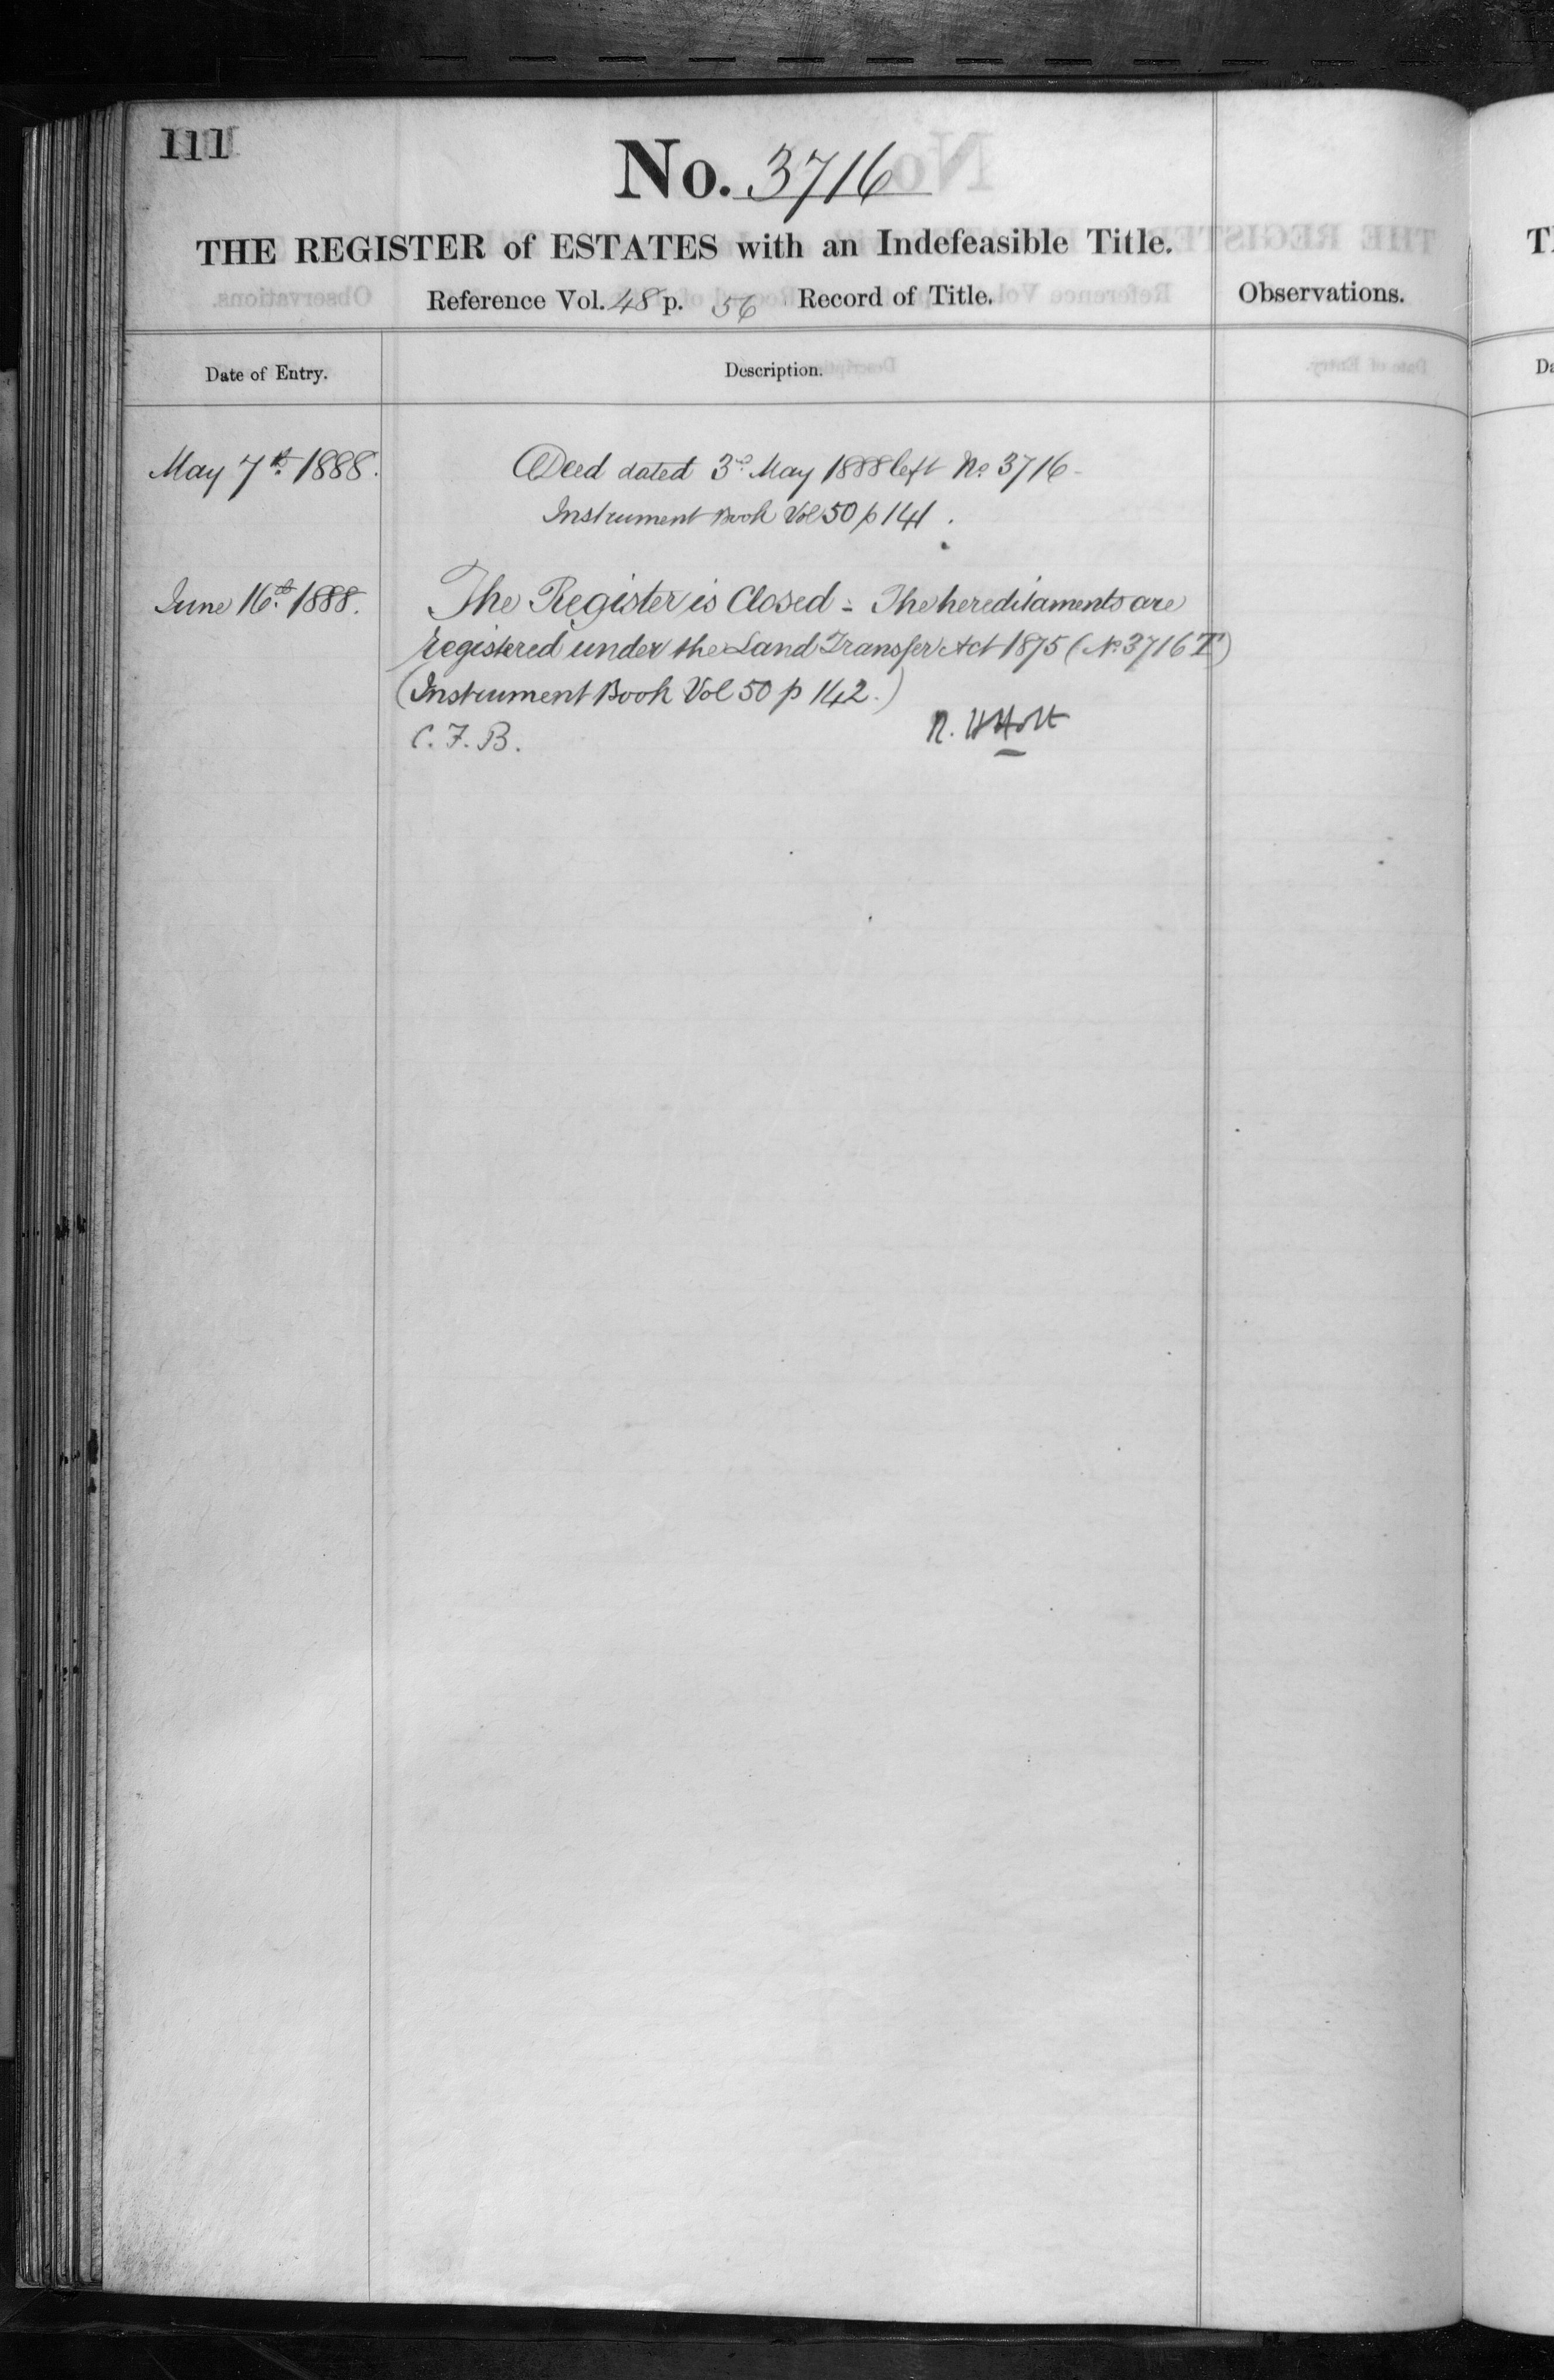 111
No. 3716
THE REGISTER of ESTATES with an Indefeasible Title.
Reference Vol. 48 p. 56 Record of Title.
Observations.
Date of Entry.
Description.
May 7th 1888.
Deed dated 3d May 1888 left No 3716 -
Instrument Book Vol 50 p 141.
June 16th 1888.
The Register is Closed - The hereditaments are
registered under the Land Transfer Act 1875 (No 3716 T)
(Instrument Book Vol 50 p 142.)
C. F. B.
R. H Holt